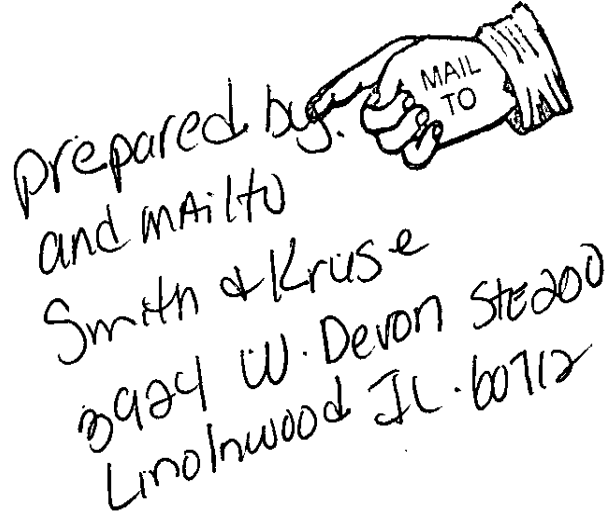 MAIL
TO
prepared by:
and mAil to
Smith & Kruse
3924 W. Devon STE 200
Linolnwood IL. 60712